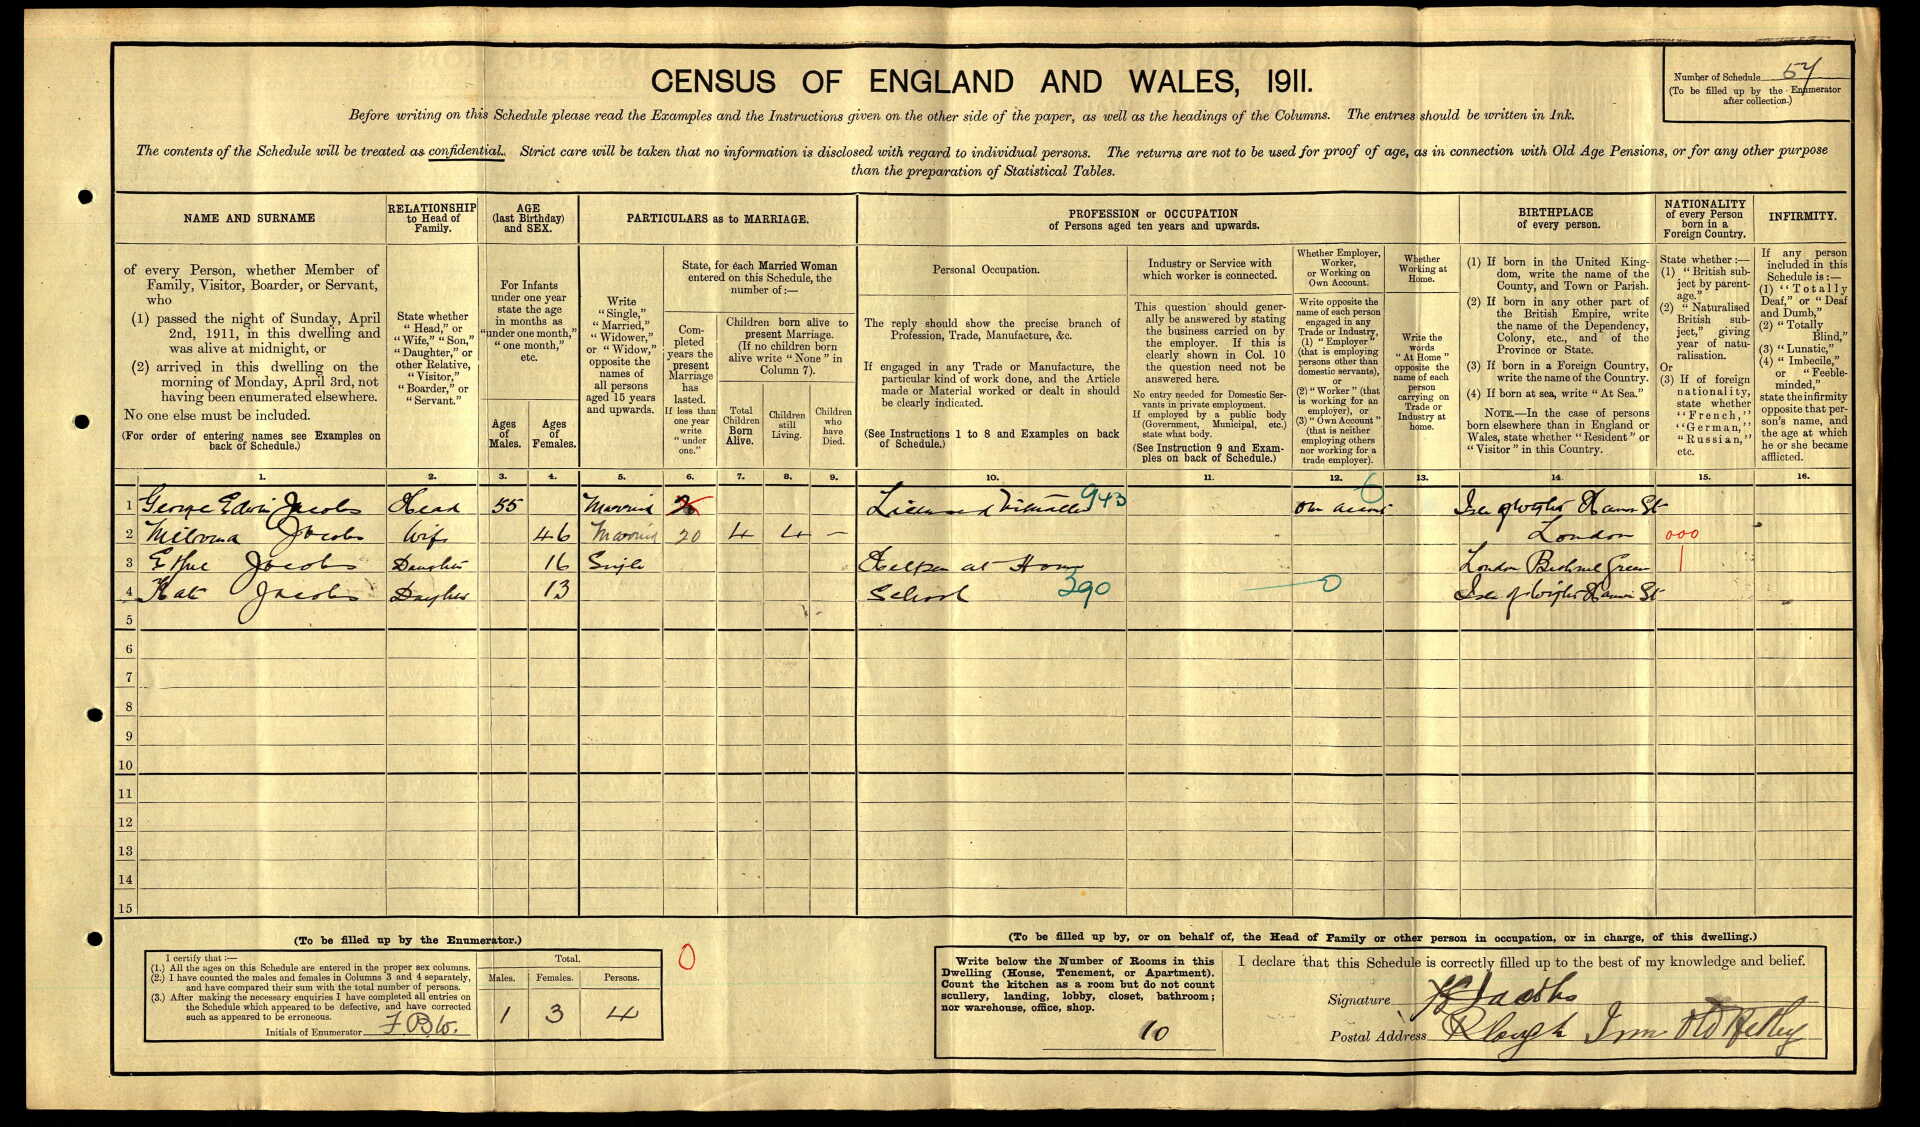 CENSUS OF ENGLAND AND WALES, 1911.
Number of Schedule 57
(To be filled up by the Enumerator
after collection.)
Before writing on this Schedule please read the Examples and the Instructions given on the other side of the paper, as well as the headings of the Columns. The entries should be written in Ink.
The contents of the Schedule will be treated as confidential. Strict care will be taken that no information is disclosed with regard to individual persons. The returns are not to be used for proof of age, as in connection with Old Age Pensions, or for any other purpose
than the preparation of Statistical Tables.
NAME AND SURNAME
RELATIONSHIP
to Head of
Family.
AGE
(last Birthday)
and SEX.
PARTICULARS as to MARRIAGE.
PROFESSION or OCCUPATION
of Persons aged ten years and upwards.
BIRTHPLACE
of every person.
NATIONALITY
of every Person
born in a
Foreign Country.
INFIRMITY.
of every Person, whether Member of
Family, Visitor, Boarder, or Servant,
who
(1) passed the night of Sunday, April
2nd, 1911, in this dwelling and
was alive at midnight, or
(2) arrived in this dwelling on the
morning of Monday, April 3rd, not
having been enumerated elsewhere.
No one else must be included.
(For order of entering names see Examples on
back of Schedule.)
State whether
"Head," or
"Wife," "Son,"
"Daughter," or
other Relative,
"Visitor,"
"Boarder," or
"Servant."
For Infants
under one year
state the age
in months as
"under one month,"
"one month,"
etc.
Ages
of
Males.
Ages
of
Females.
Write
"Single,"
"Married,"
"Widower,"
or "Widow,"
opposite the
names of
all persons
aged 15 years
and upwards.
State, for each Married Woman
entered on this Schedule, the
number of:—
Com-
pleted
years the
present
Marriage
has
lasted.
If less than
one year
write
"under
one."
Children born alive to
present Marriage.
(If no children born
alive write "None" in
Column 7).
Total
Children
Born
Alive.
Children
still
Living.
Children
who
have
Died.
Personal Occupation.
The reply should show the precise branch of
Profession, Trade, Manufacture, &c.
If engaged in any Trade or Manufacture, the
particular kind of work done, and the Article
made or Material worked or dealt in should
be clearly indicated.
(See Instructions 1 to 8 and Examples on back
of Schedule.)
Industry or Service with
which worker is connected.
This question should gener-
ally be answered by stating
the business carried on by
the employer. If this is
clearly shown in Col. 10
the question need not be
answered here.
No entry needed for Domestic Ser-
vants in private employment.
If employed by a public body
(Government, Municipal, etc.)
state what body.
(See Instruction 9 and Exam-
ples on back of Schedule.)
Whether Employer,
Worker,
or Working on
Own Account.
Write opposite the
name of each person
engaged in any
Trade or Industry,
(1) "Employer"
(that is employing
persons other than
domestic servants),
or
(2) "Worker" (that
is working for an
employer), or
(3) "Own Account"
(that is neither
employing others
nor working for a
trade employer).
Whether
Working at
Home.
Write the
words
"At Home"
opposite the
name of each
person
carrying on
Trade or
Industry at
home.
(1) If born in the United King-
dom, write the name of the
County, and Town or Parish.
(2) If born in any other part of
the British Empire, write
the name of the Dependency,
Colony, etc., and of the
Province or State.
(3) If born in a Foreign Country,
write the name of the Country.
(4) If born at sea, write "At Sea."
NOTE.—In the case of persons
born elsewhere than in England or
Wales, state whether "Resident" or
"Visitor" in this Country.
State whether:—
(1) "British sub-
ject by parent-
age."
(2) "Naturalised
British sub-
ject," giving
year of natu-
ralisation.
Or
(3) If of foreign
nationality,
state whether
"French,"
"German,"
"Russian,"
etc.
If any person
included in this
Schedule is:—
(1) "Totally
Deaf," or "Deaf
and Dumb,"
(2) "Totally
Blind,"
(3) "Lunatic,"
(4) "Imbecile,"
or "Feeble-
minded,"
state the infirmity
opposite that per-
son's name, and
the age at which
he or she became
afflicted.
1. 2. 3. 4. 5. 6. 7. 8. 9. 10. 11. 12. 13. 14. 15. 16.
1 George Edwin Jacobs Head 55 Married Licensed Victualler 943 Own Account 6 Isle of Wight
2 Jacobs Wife 46 Married 20 4 4 — London 000
3 Jacobs Daughter 16 Single at Home London Bethnal Green 1
4 Kate Jacobs Daughter 13 School 390 0 Isle of Wight
5
6
7
8
9
10
11
12
13
14
15
(To be filled up by the Enumerator.)
I certify that:—
(1.) All the ages on this Schedule are entered in the proper sex columns.
(2.) I have counted the males and females in Columns 3 and 4 separately,
and have compared their sum with the total number of persons.
(3.) After making the necessary enquiries I have completed all entries on
the Schedule which appeared to be defective, and have corrected
such as appeared to be erroneous.
Initials of Enumerator F.B.W.
Total.
Males. Females. Persons.
1 3 4
0
(To be filled up by, or on behalf of, the Head of Family or other person in occupation, or in charge, of this dwelling.)
Write below the Number of Rooms in this
Dwelling (House, Tenement, or Apartment).
Count the kitchen as a room but do not count
scullery, landing, lobby, closet, bathroom;
nor warehouse, office, shop.
10
I declare that this Schedule is correctly filled up to the best of my knowledge and belief.
Signature Jacobs
Postal Address Plough Inn Old